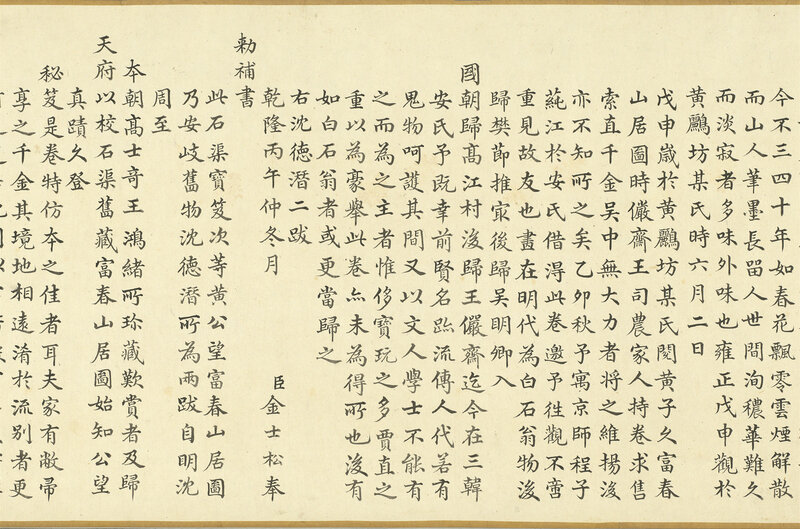 今不三四十年如春花飄零雲煙解散
而山人筆墨長留人世間洵穠華難久
而淡寂者多味外味也雍正戊申觀於
黃鸝坊某氏時六月二日
戊申歲於黃鸝坊某氏閱黃子久富春
山居圖時儼齋王司農家人持卷求售
索直千金吳中無大力者將之維揚後
亦不知所之矣乙卯秋予寓京師程子
蓴江於安氏借得此卷邀予往觀不啻
重見故友也畫在明代為白石翁物後
歸樊節推冣後歸吳明卿入
國朝歸高江村後歸王儼齋迄今在三韓
安氏予既幸前賢名跡流傳人代若有
鬼物呵護其間又以文人學士不能有
之而為之主者惟侈寶玩之多賈直之
重以為豪舉此卷亦未為得所也後有
如白石翁者或更當歸之
右沈德潛二跋
乾隆丙午仲冬月 臣金士松奉
勅補書
此石渠寶笈次等黃公望富春山居圖
乃安岐舊物沈德潛所為兩跋自明沈
周至
本朝高士奇王鴻緒所珍藏歎賞者及歸
天府以校石渠舊藏富春山居圖始知公望
真蹟久登
秘笈是卷特仿本之佳者耳夫家有敝帚
享之千金其境地相遠淆於流別者更